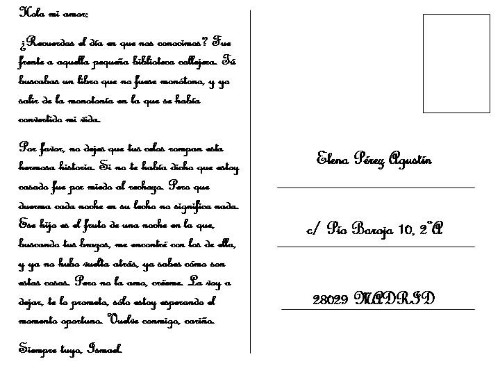 Hola mi amor:
¿Recuerdas el día en que nos conocimos? Fue
frente a aquella pequeña biblioteca callejera. Tú
buscabas un libro que no fuese monótono, y yo
salir de la monotonía en la que se había
convertido mi vida.
Por favor, no dejes que tus celos rompan esta
hermosa historia. Si no te había dicho que estoy
casado fue por miedo al rechazo. Pero que
duerma cada noche en su lecho no significa nada.
Ese hijo es el fruto de una noche en la que,
buscando tus brazos, me encontré con los de ella,
y ya no hubo vuelta atrás, ya sabes cómo son
estas cosas. Pero no la amo, créeme. La voy a
dejar, te lo prometo, sólo estoy esperando el
momento oportuno. Vuelve conmigo, cariño.
Siempre tuyo, Ismael.
Elena Pérez Agustín
c/ Pío Baroja 10, 2ºA
28029 MADRID